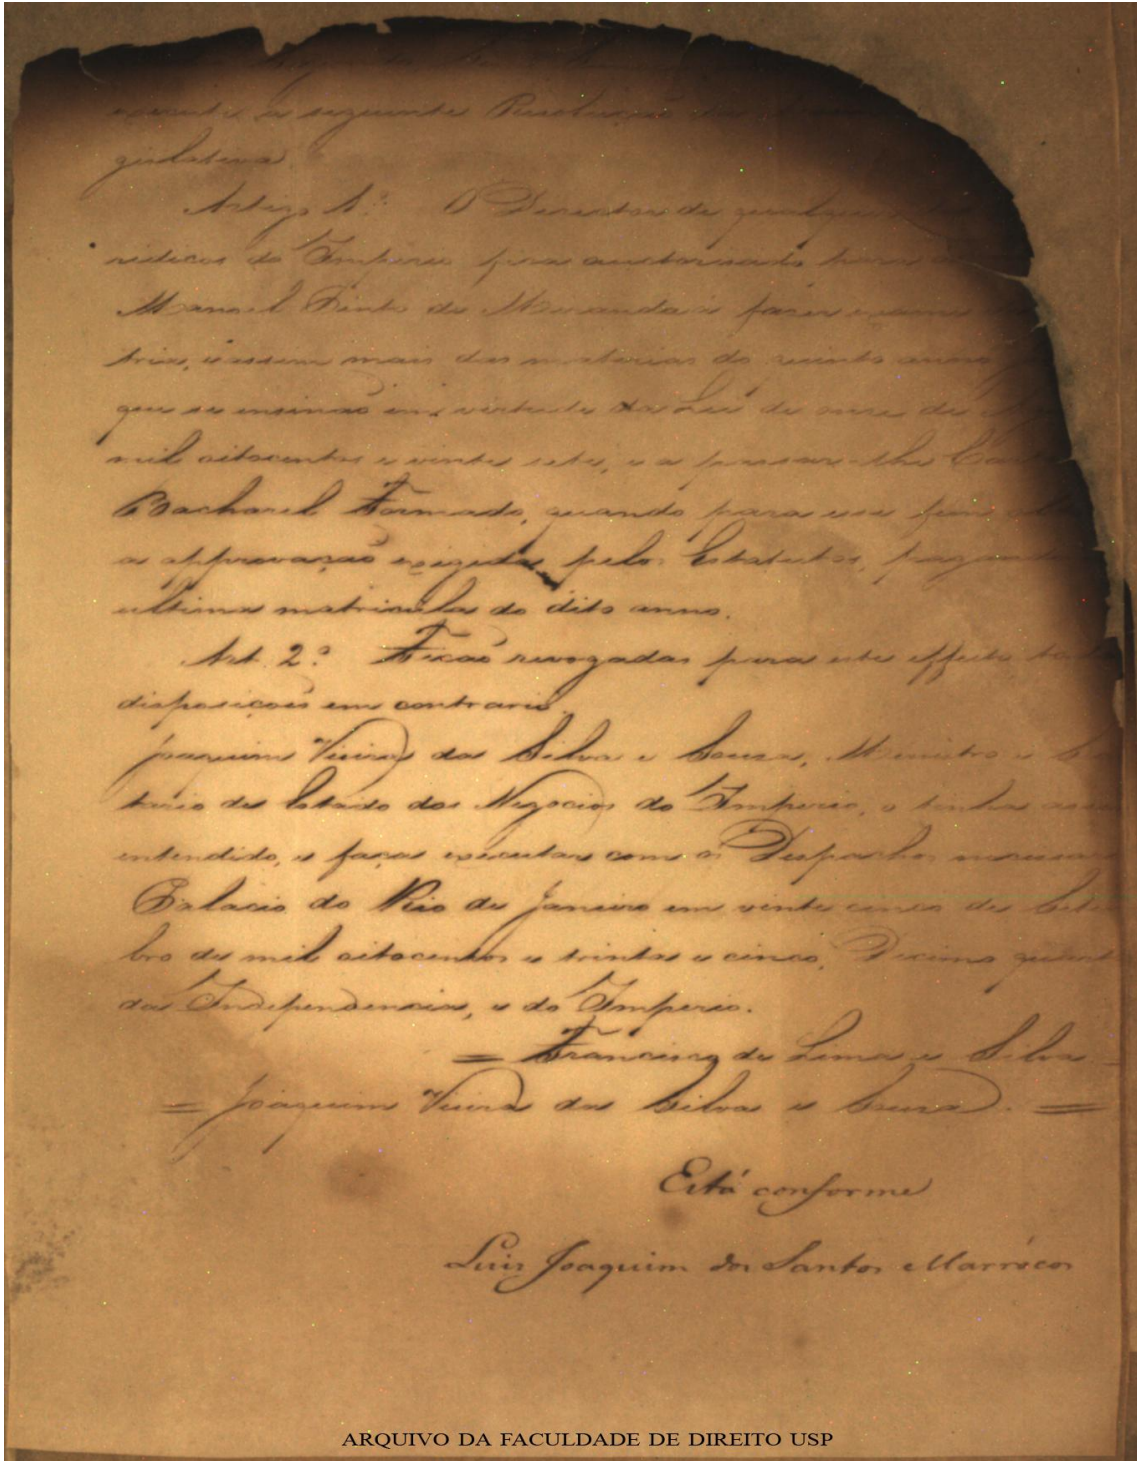 execute a seguinte Resolução da
gislativa.
Artigo 1.º O Director de qualquer
ridicos do Imperio fica auctorisado para
Manoel Pinto de Miranda a fazer exame
tria, e assim mais das materias do quinto anno
que se ensinão em virtude da Lei de onze de
mil oitocentos e vinte sete, e a passar-lhe Carta
Bacharel Formado, quando para esse fim
a approvação exigida pelos Estatutos, pagando
ultima matricula do dito anno.
Art. 2.º Ficão revogadas para este effeito
disposiçoes em contrario.
Joaquim Vieira da Silva e Souza, Ministro e
tario de Estado dos Negocios do Imperio, o tenha assim
entendido, e faça executar com os Despachos necessarios
Palacio do Rio de Janeiro em vinte cinco de Setem
bro de mil oitocentos e trinta e cinco, Decimo quarto
da Independencia, e do Imperio.
= Francisco de Lima e Silva
= Joaquim Vieira da Silva e Souza. =
Está conforme
Luis Joaquim dos Santos Marrócos
ARQUIVO DA FACULDADE DE DIREITO USP